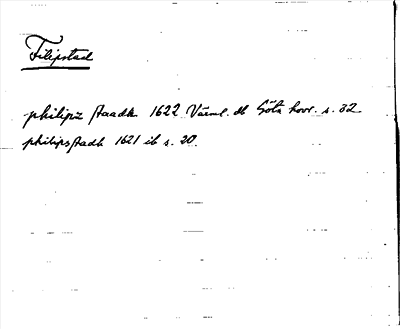 Filipstad
philipz staadh 1622 Värml. db Göta hovr. s. 32
philipsstadh 1621 ib s. 20.